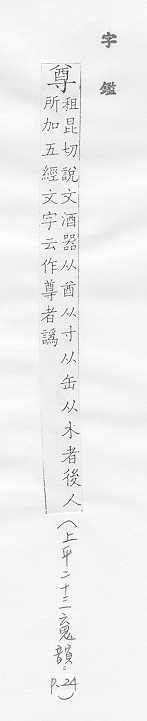 字鑑
尊
租昆切說文酒器从酋从寸从缶从木者後人
所加五經文字云作尊者譌
(上平二十三魂韻. P.24)